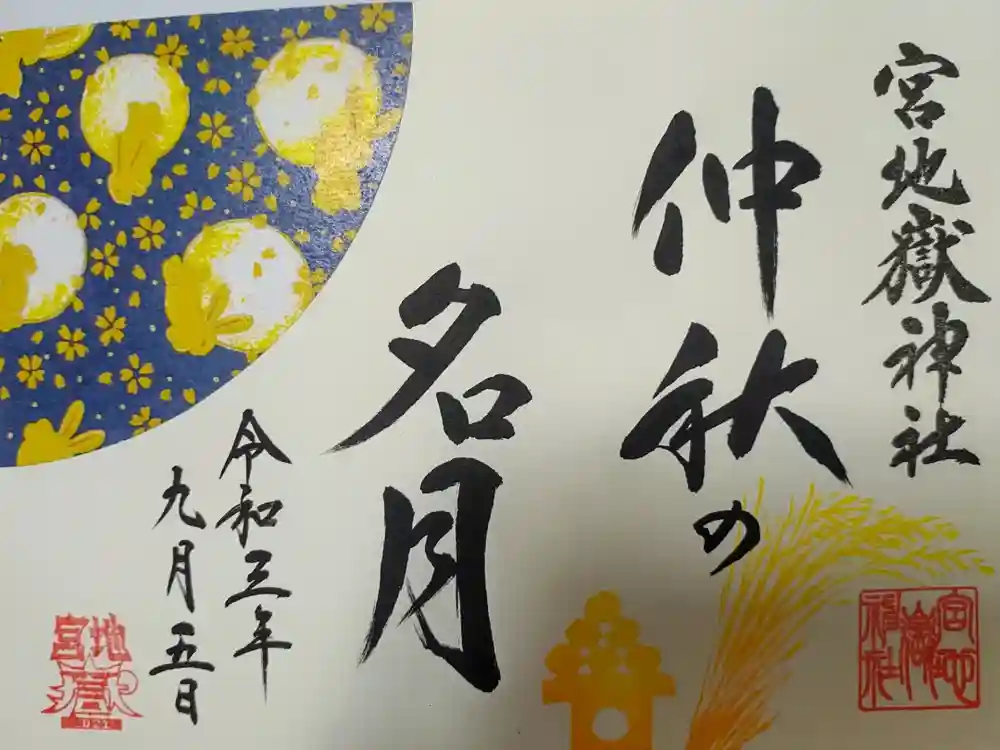 宮地嶽神社
仲秋の
名月
令和三年
九月五日
宮地
嶽
神社
宮地
嶽